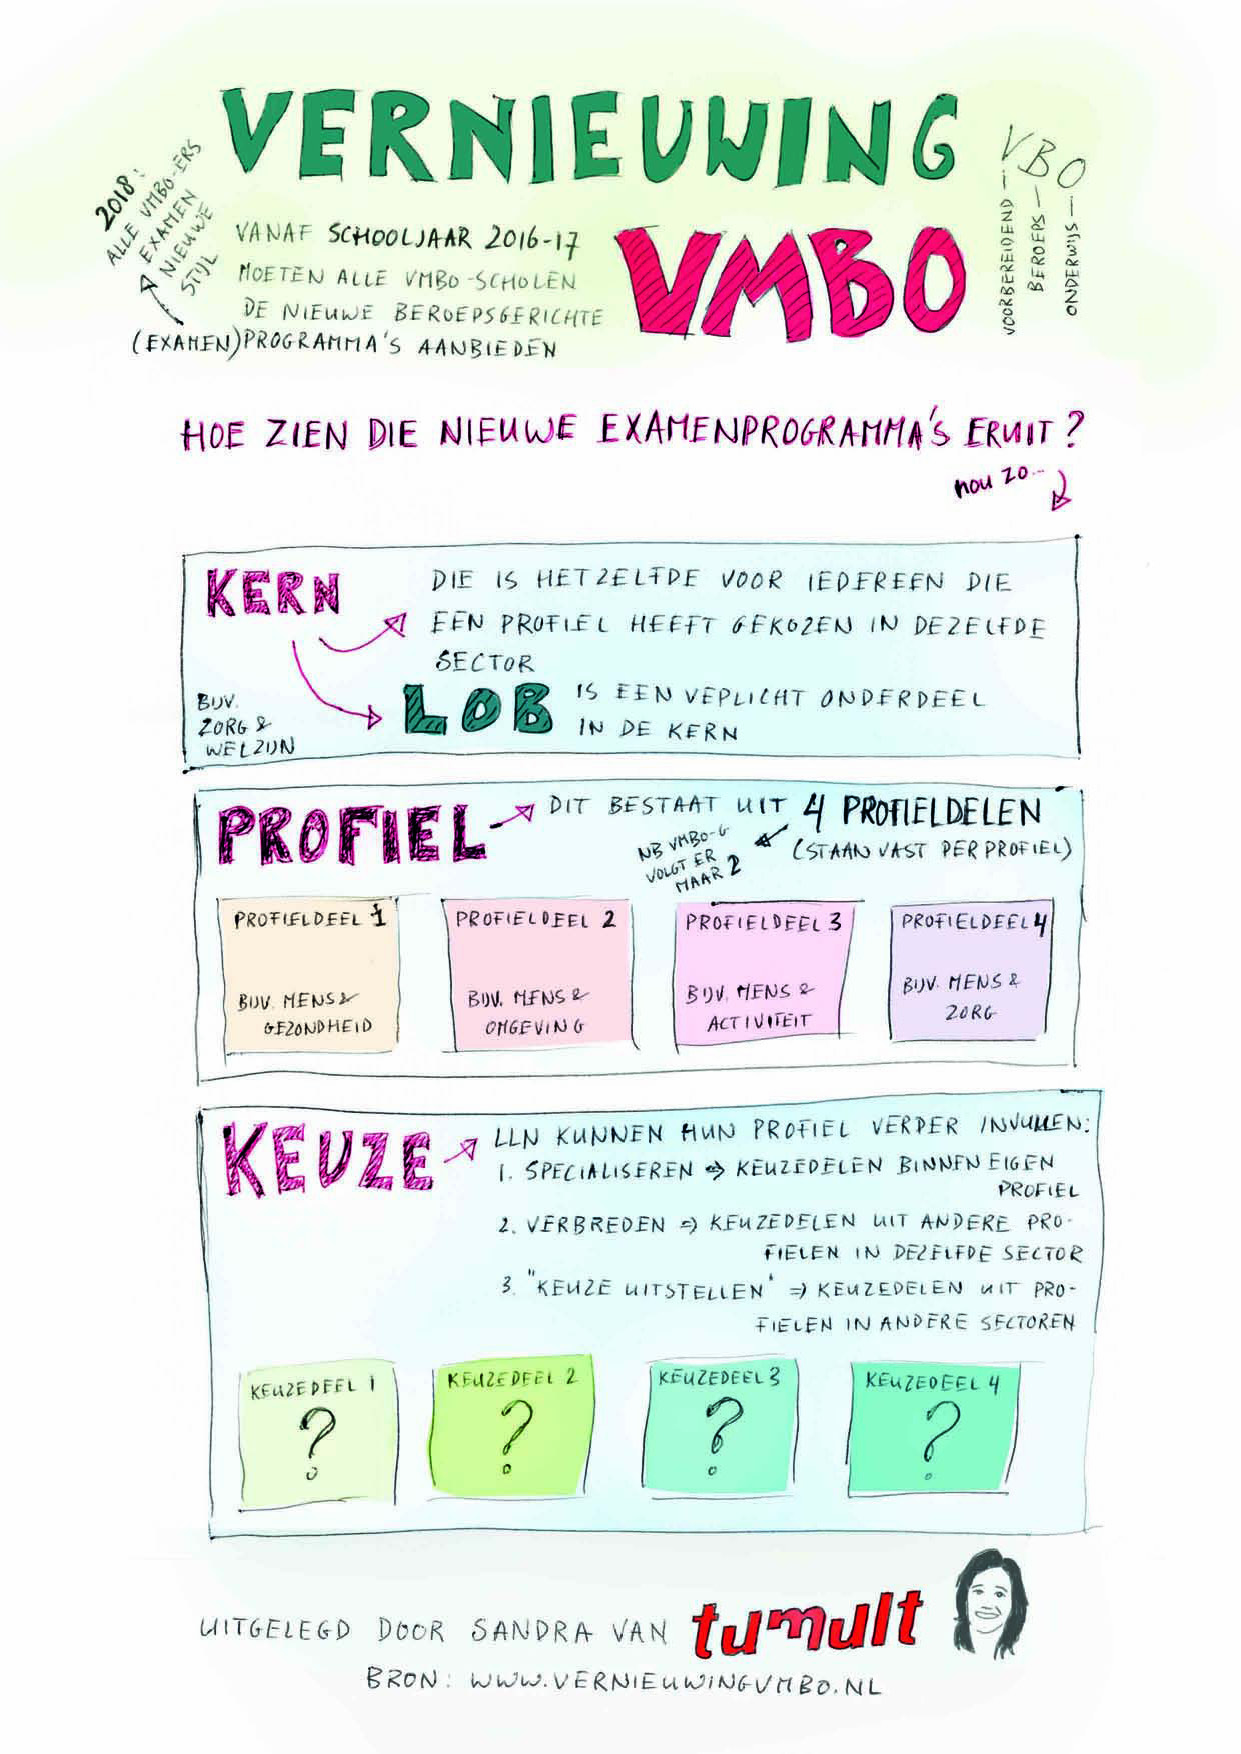 VERNIEUWING
VMBO
2018:
ALLE VMBO-ERS
EXAMEN
NIEUWE
STIJL
VANAF SCHOOLJAAR 2016-17
MOETEN ALLE VMBO-SCHOLEN
DE NIEUWE BEROEPSGERICHTE
(EXAMEN)PROGRAMMA'S AANBIEDEN
VBO
VOORBEREIDEND-
BEROEPS-
ONDERWIJS-
HOE ZIEN DIE NIEUWE EXAMENPROGRAMMA'S ERUIT?
nou zo...
KERN
DIE IS HETZELFDE VOOR IEDEREEN DIE
EEN PROFIEL HEEFT GEKOZEN IN DEZELFDE
SECTOR
BIJV.
ZORG &
WELZIJN
LOB IS EEN VEPLICHT ONDERDEEL
IN DE KERN
PROFIEL
DIT BESTAAT UIT 4 PROFIELDELEN
(STAAN VAST PER PROFIEL)
NB VMBO-G
VOLGT ER
MAAR 2
PROFIELDEEL 1
BIJV. MENS &
GEZONDHEID
PROFIELDEEL 2
BIJV. MENS &
OMGEVING
PROFIELDEEL 3
BIJV. MENS &
ACTIVITEIT
PROFIELDEEL 4
BIJV. MENS &
ZORG
KEUZE
LLN KUNNEN HUN PROFIEL VERDER INVULLEN:
1. SPECIALISEREN => KEUZEDELEN BINNEN EIGEN
PROFIEL
2. VERBREDEN => KEUZEDELEN UIT ANDERE PRO-
FIELEN IN DEZELFDE SECTOR
3. "KEUZE UITSTELLEN" => KEUZEDELEN UIT PRO-
FIELEN IN ANDERE SECTOREN
KEUZEDEEL 1
?
KEUZEDEEL 2
?
KEUZEDEEL 3
?
KEUZEDEEL 4
?
UITGELEGD DOOR SANDRA VAN tumult
BRON: WWW.VERNIEUWINGVMBO.NL